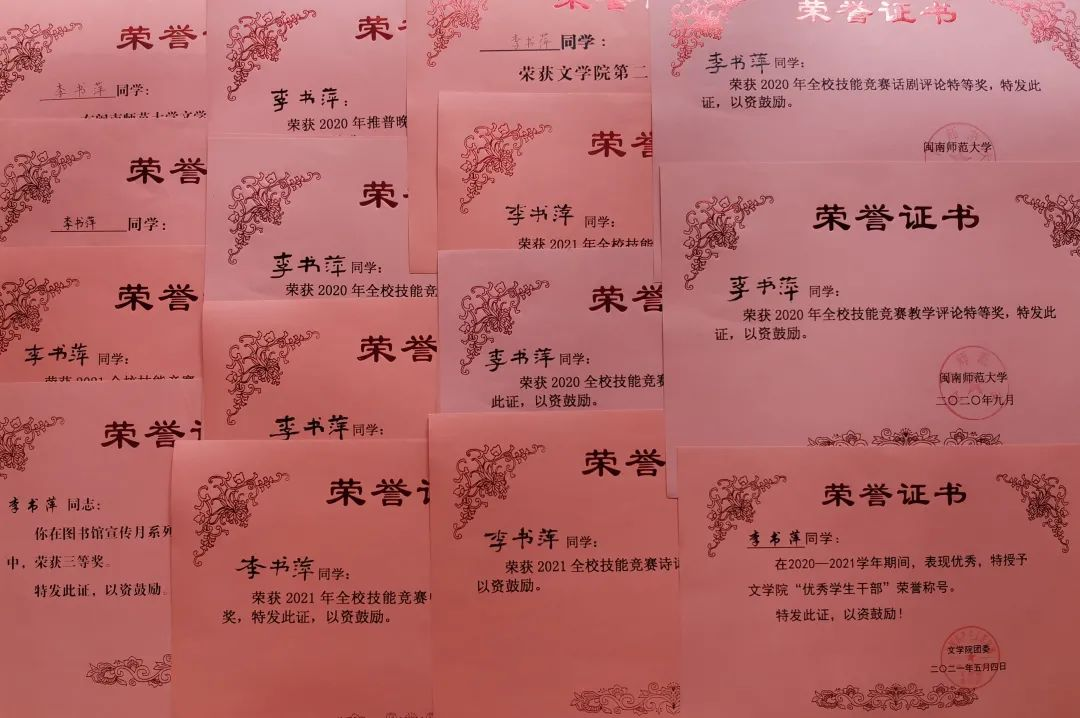 荣誉
李书萍同学:
在闽南师范大学文学
荣誉
李书萍同学:
荣誉
李书萍同学:
荣获2021全校技能竞赛
荣誉
李书萍同志:
你在图书馆宣传月系列
中,荣获三等奖。
特发此证,以资鼓励。
荣
李书萍:
荣获2020年推普晚
荣
李书萍同学:
荣获2020年全校技能竞
荣誉
李书萍同学:
荣誉
李书萍同学:
荣获2021年全校技能竞赛
奖,特发此证,以资鼓励。
荣誉
李书萍同学:
荣获文学院第二
荣誉
李书萍同学:
荣获2021年全校技能
荣誉
李书萍同学:
荣获2020全校技能竞赛
此证,以资鼓励。
荣誉
李书萍同学:
荣获2021全校技能竞赛诗
以资鼓励。
荣誉证书
李书萍同学:
荣获2020年全校技能竞赛话剧评论特等奖,特发此
证,以资鼓励。
闽南师范大学
荣誉证书
李书萍同学:
荣获2020年全校技能竞赛教学评论特等奖,特发此
证,以资鼓励。
闽南师范大学
二〇二〇年九月
荣誉证书
李书萍同学:
在2020—2021学年期间,表现优秀,特授予
文学院“优秀学生干部”荣誉称号。
特发此证,以资鼓励!
文学院团委
二〇二一年五月四日